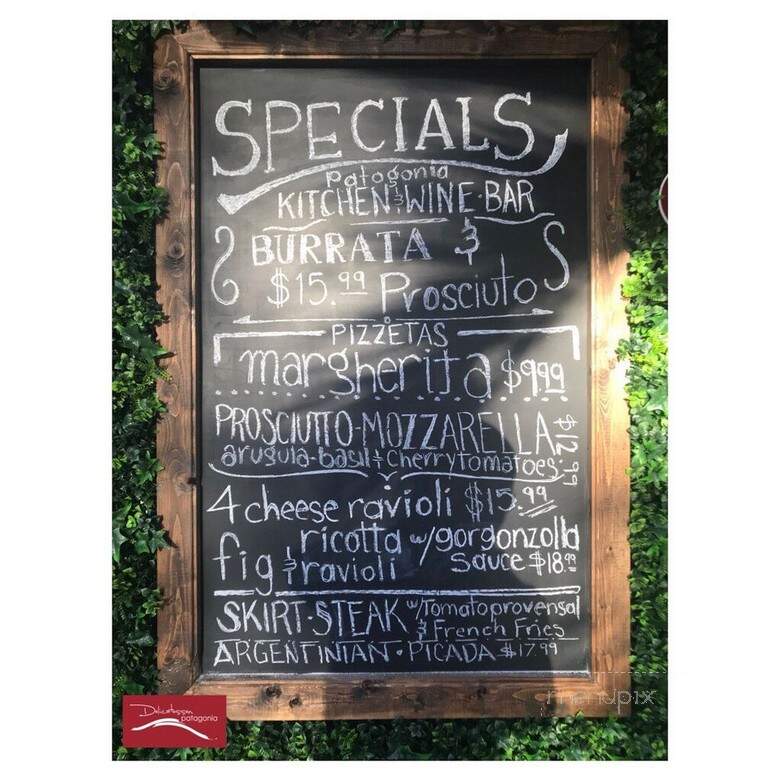 SPECIALS
Patagonia
KITCHEN & WINE-BAR
BURRATA &
$15.99 Prosciuto
PIZZETAS
margherita $9.99
PROSCIUTTO-MOZZARELLA $12.99
arugula-basil & cherry tomatoes-
4 cheese ravioli $15.99
fig & ricotta ravioli w/gorgonzolla sauce $18.99
SKIRT-STEAK w/Tomato provensal
& French Fries
ARGENTINIAN-PICADA $17.99
Delicatessen
patagonia
menupix